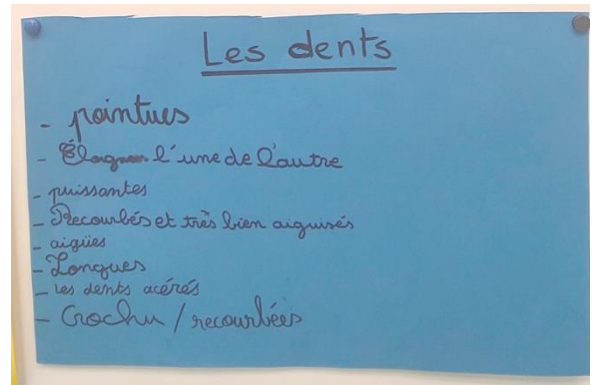 Les dents
- pointues
- l'une de l'autre
- puissantes
- Recourbés et très bien aiguisés
- aigües
- Longues
- Les dents acérés
- Crochu / recourbées